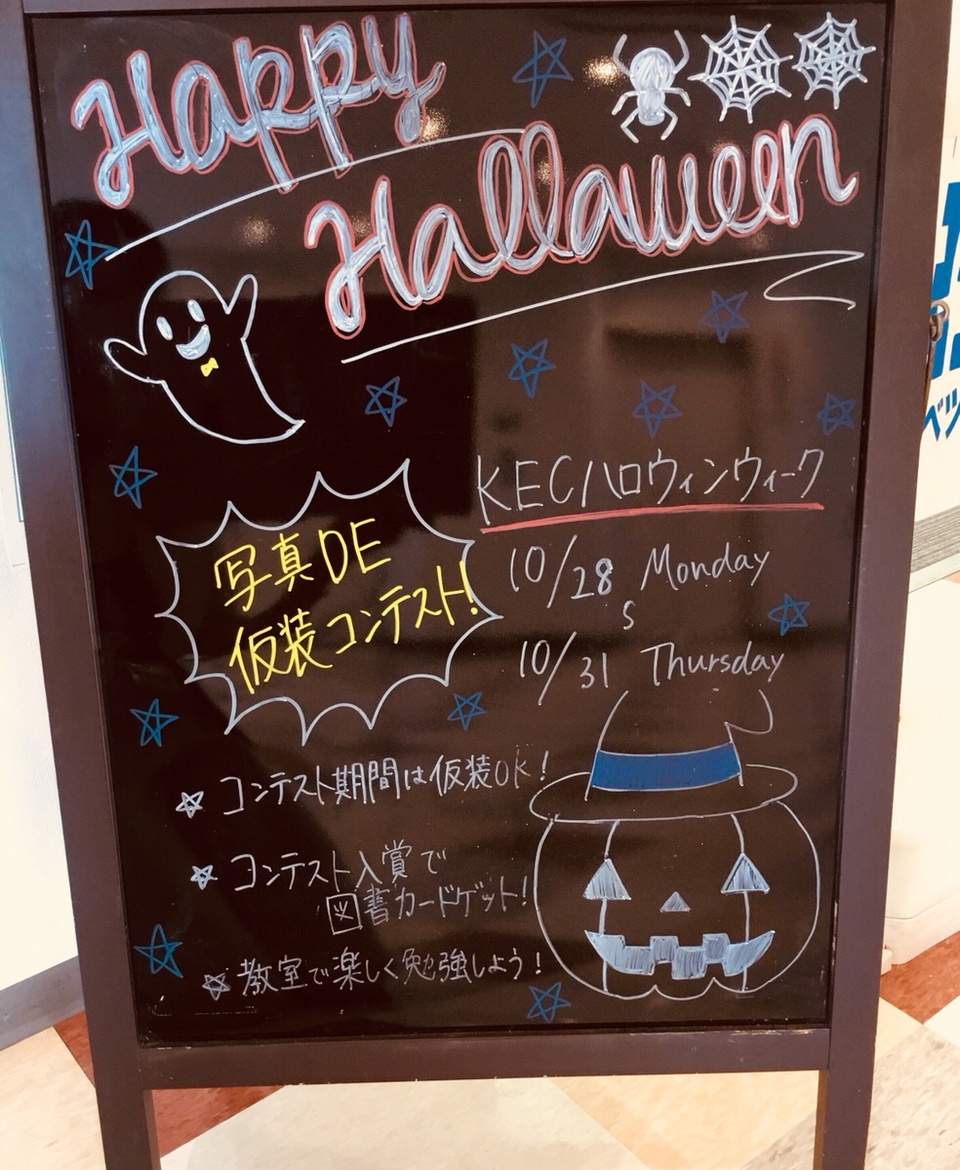 Happy
Halloween
KECハロウィンウィーク
10/28 Monday
S
10/31 Thursday
写真DE
仮装コンテスト!
コンテスト期間は仮装OK!
コンテスト入賞で
図書カードゲット!
教室で楽しく勉強しよう!